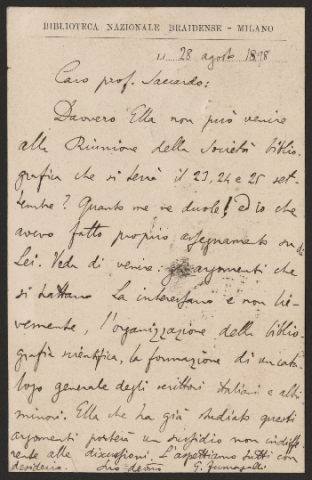 BIBLIOTECA NAZIONALE BRAIDENSE - MILANO
28 agosto 1898
Caro prof. Saccardo:
Davvero Ella non può venire
alla Riunione della Società biblio-
grafica che si terrà il 23, 24 e 25 set-
tembre? Quanto me ne duole! ed io che
avevo fatto proprio assegnamento su di
Lei. Veda di venire: gli argomenti che
si trattano La interessano e non lie-
vemente, l'organizzazione della biblio-
grafia scientifica, la formazione di un cata-
logo generale degli scrittori italiani e altri
minori. Ella che ha già studiato questi
argomenti porterà un sussidio non indiffe-
rente alle discussioni. L'aspettiamo tutti con
desiderio. Suo devmo G. Fumagalli